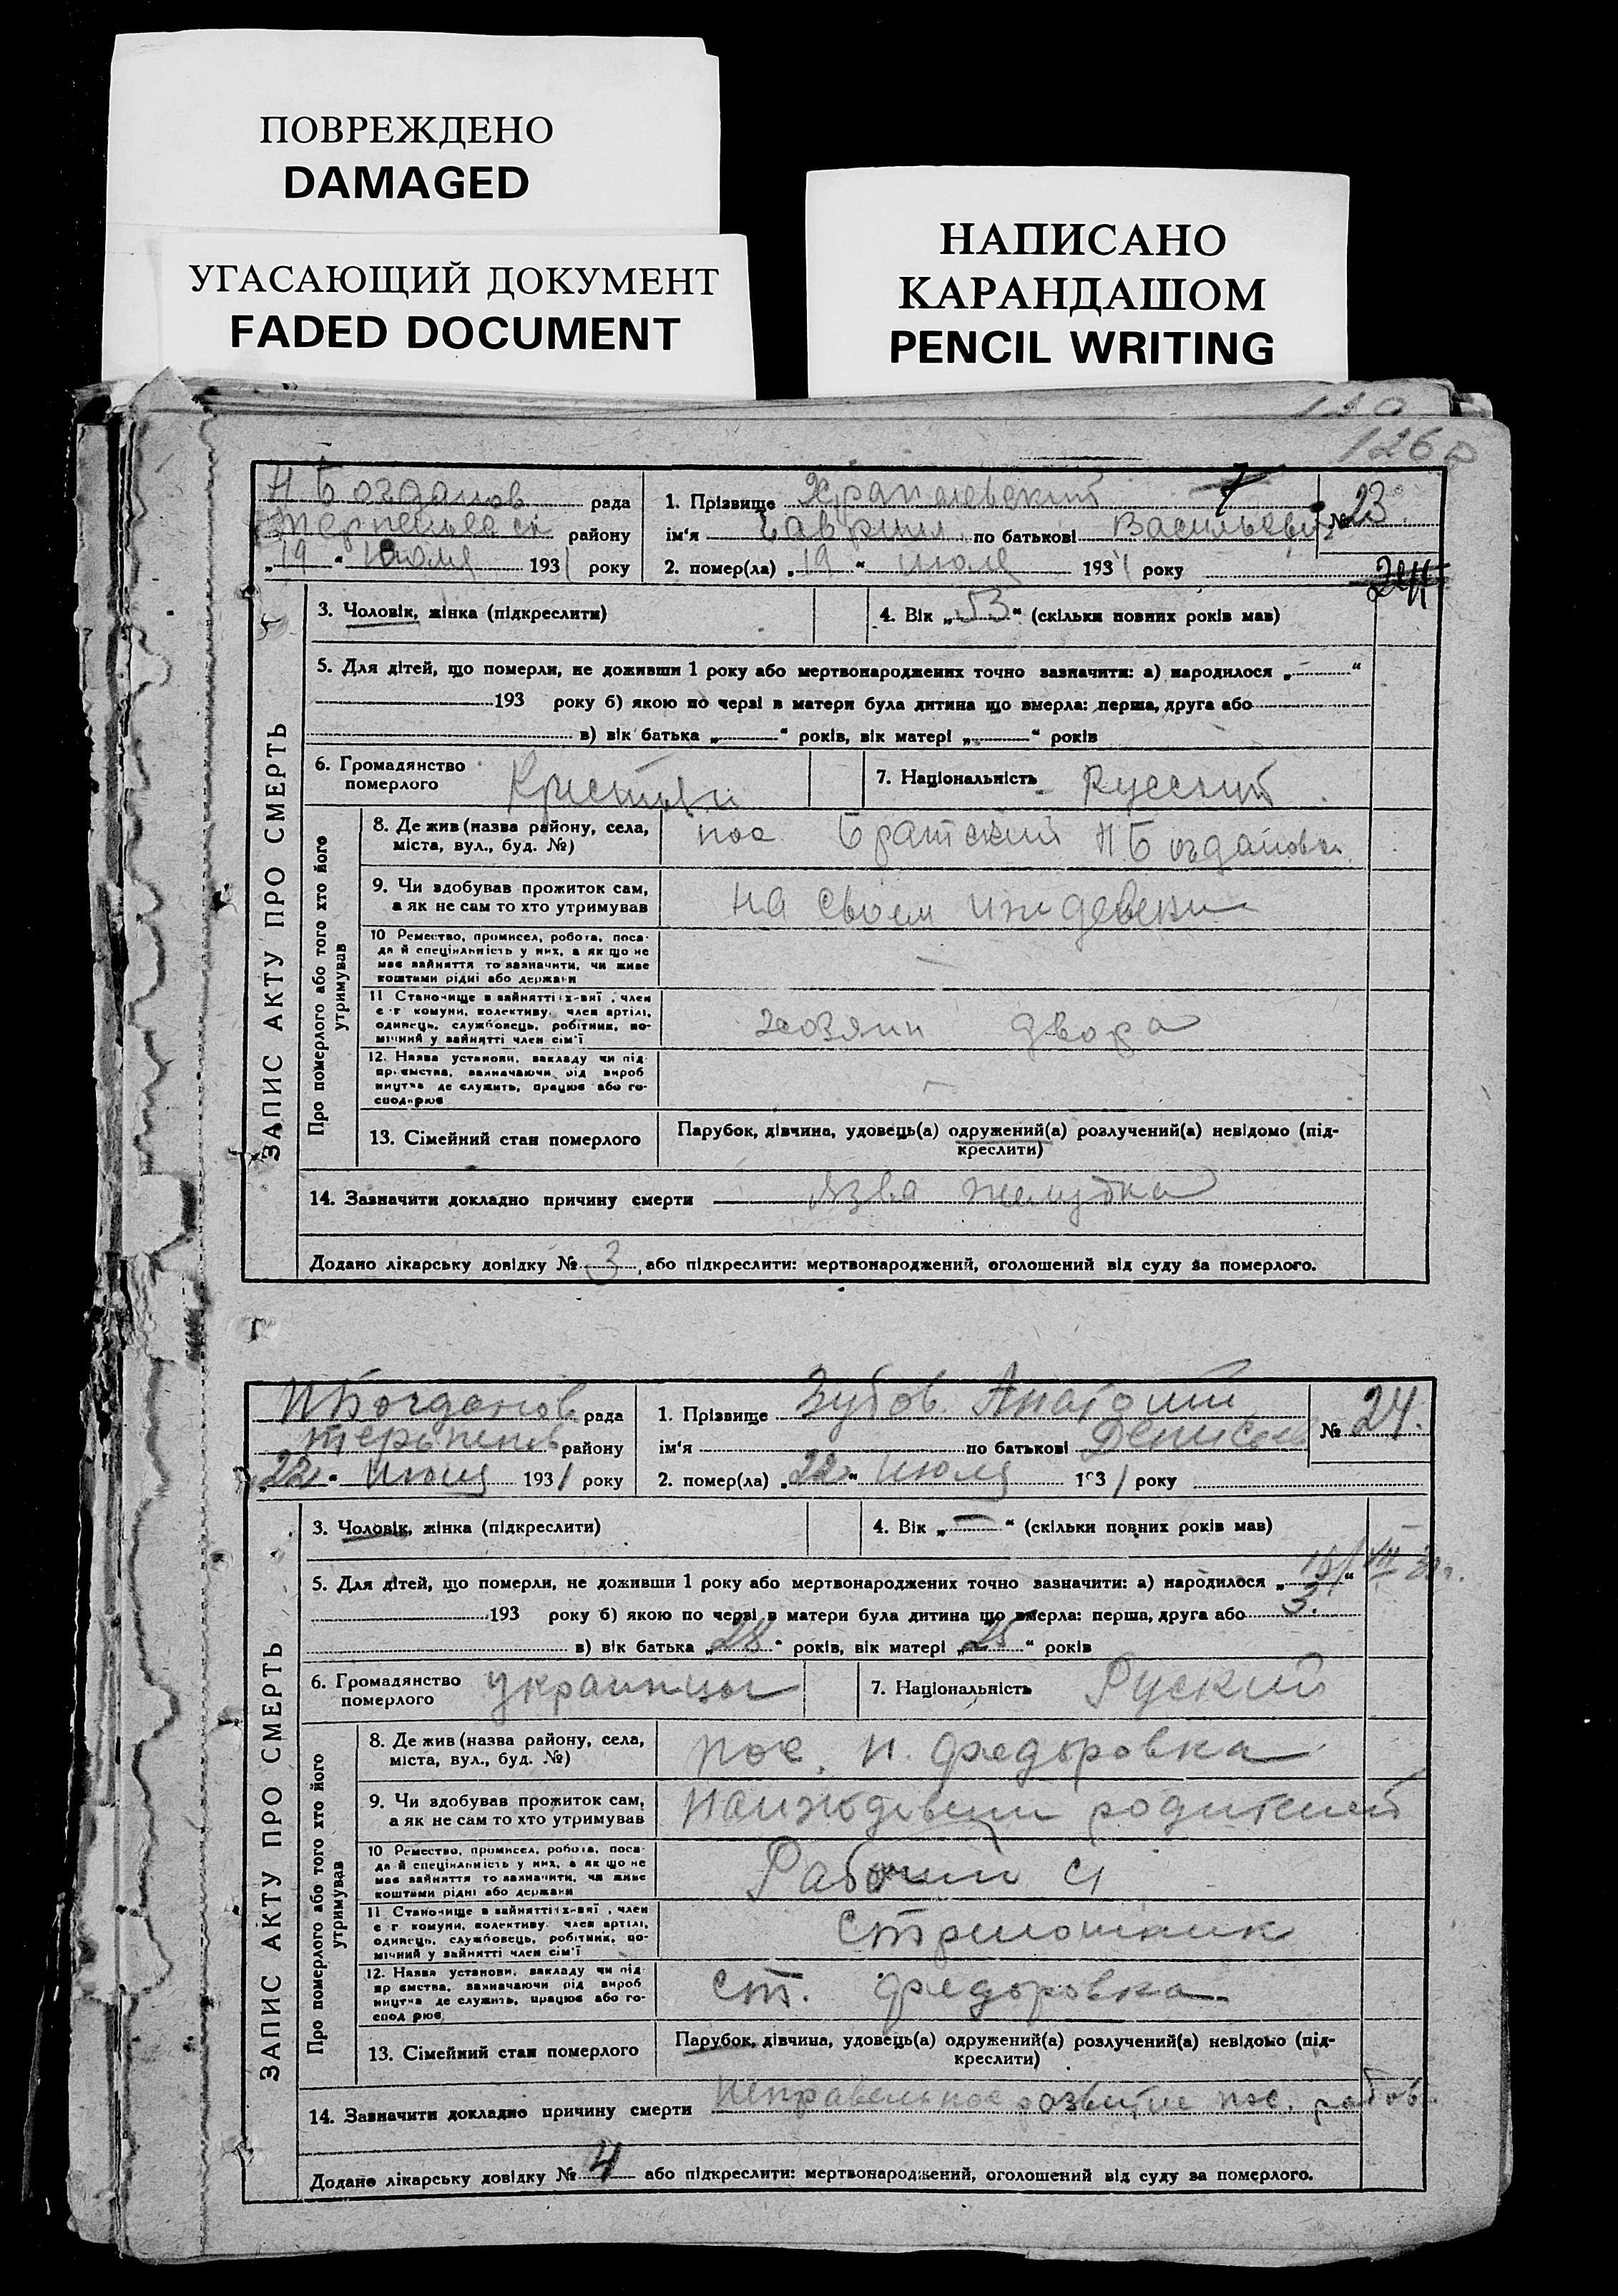 ПОВРЕЖДЕНО
DAMAGED
УГАСАЮЩИЙ ДОКУМЕНТ
FADED DOCUMENT
НАПИСАНО
КАРАНДАШОМ
PENCIL WRITING
126
Н Богданов рада
району
„19“ июля 1931 року
1. Прізвище
ім'я Гавриил по батькові Васильевич
2. помер(ла) „19“ июля 1931 року
№ 23
ЗАПИС АКТУ ПРО СМЕРТЬ
3. Чоловік, жінка (підкреслити)
4. Вік „53“ (скільки повних років мав)
5. Для дітей, що померли, не доживши 1 року або мертвонароджених точно зазначити: а) народилося „ “
193 року б) якою по черзі в матери була дитина що вмерла: перша, друга або
в) вік батька „ “ років, вік матері „ “ років
6. Громадянство
померлого
7. Національність Русский
Про померлого або того хто його
утримував
8. Де жив (назва району, села,
міста, вул., буд. №)
пос Братский Н Богдановка
9. Чи здобував прожиток сам,
а як не сам то хто утримував
на своем иждевении
10 Ремество, промисел, робота, поса-
да й спеціяльність у них, а як що не
має зайняття то зазначити, чи живе
коштами рідні або держави
11 Становище в зайнятті член
с-г комуни, колективу, член артілі,
одинець, службовець, робітник, по-
мічний у зайнятті член сім'ї
хозяин двора
12. Назва установи, закладу чи під-
приємства, зазначаючи рід вироб
ництва де служить, працює або го-
сподарює
13. Сімейний стан померлого
Парубок, дівчина, удовець(а) одружений(а) розлучений(а) невідомо (під-
креслити)
14. Зазначити докладно причину смерти язва желудка
Додано лікарську довідку № 3, або підкреслити: мертвонароджений, оголошений від суду за померлого.
Н Богданов рада
району
„22“ июля 1931 року
1. Прізвище Зубов Анатолий
ім'я по батькові
2. помер(ла) „22“ июля 1931 року
№ 24.
ЗАПИС АКТУ ПРО СМЕРТЬ
3. Чоловік, жінка (підкреслити)
4. Вік „—“ (скільки повних років мав)
5. Для дітей, що померли, не доживши 1 року або мертвонароджених точно зазначити: а) народилося „ “
193 року б) якою по черзі в матери була дитина що вмерла: перша, друга або 3.
в) вік батька „28“ років, вік матері „25“ років
6. Громадянство
померлого
украинцы
7. Національність Руский
Про померлого або того хто його
утримував
8. Де жив (назва району, села,
міста, вул., буд. №)
пос. н. федоровка
9. Чи здобував прожиток сам,
а як не сам то хто утримував
родителей
10 Ремество, промисел, робота, поса-
да й спеціяльність у них, а як що не
має зайняття то зазначити, чи живе
коштами рідні або держави
Рабочий
11 Становище в зайнятті член
с-г комуни, колективу, член артілі,
одинець, службовець, робітник, по-
мічний у зайнятті член сім'ї
12. Назва установи, закладу чи під-
приємства, зазначаючи рід вироб
ництва де служить, працює або го-
сподарює
ст. федоровка
13. Сімейний стан померлого
Парубок, дівчина, удовець(а) одружений(а) розлучений(а) невідомо (під-
креслити)
14. Зазначити докладно причину смерти развитие пос.
Додано лікарську довідку № 4 або підкреслити: мертвонароджений, оголошений від суду за померлого.